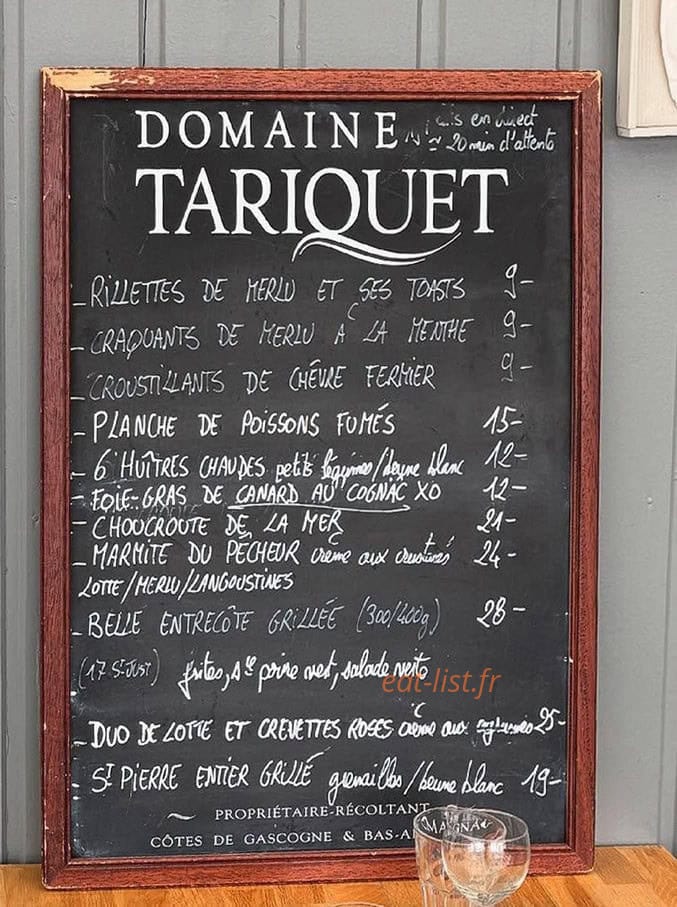 DOMAINE
en direct
≈ 20 min d'attente
TARIQUET
- RILLETTES DE MERLU ET SES TOASTS 9-
- CRAQUANTS DE MERLU A LA MENTHE 9-
- CROUSTILLANTS DE CHÊVRE FERMIER 9-
- PLANCHE DE POISSONS FUMÉS 15-
- 6 HUÎTRES CHAUDES petits légumes/beurre blanc 12-
- FOIE-GRAS DE CANARD AU COGNAC XO 12-
- CHOUCROUTE DE LA MER 21-
- MARMITE DU PÊCHEUR crème aux crustacés 24-
LOTTE/MERLU/LANGOUSTINES
- BELLE ENTRECÔTE GRILLÉE (300/400g) 28-
(17 St JUST) frites, sce poivre vert, salade verte
eat-list.fr
- DUO DE LOTTE ET CREVETTES ROSES crème aux 25-
- ST PIERRE ENTIER GRILLÉ grenailles/beurre blanc 19-
~ PROPRIÉTAIRE-RÉCOLTANT
CÔTES DE GASCOGNE & BAS-